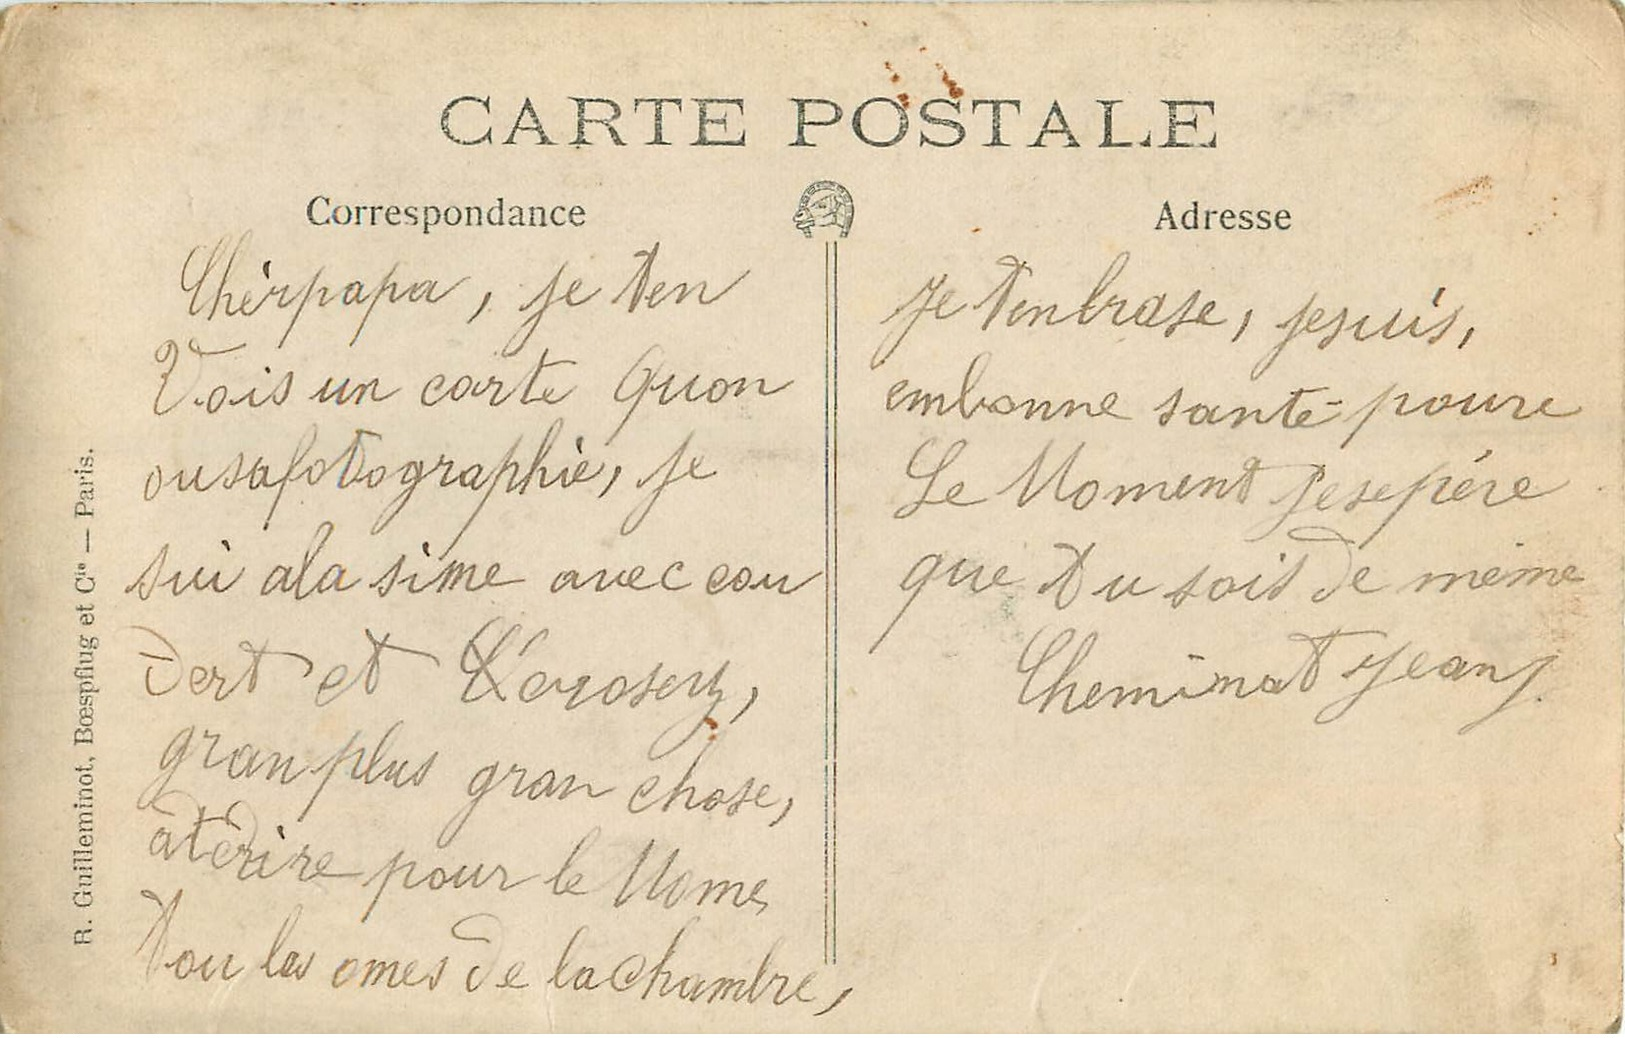 CARTE POSTALE
Correspondance
Chèrpapa, je ten
Vois un carte quon
ousafotographie, je
sui ala sime avec cou
dert et
gran plus gran chose,
àt dire pour le Mome
Tou les omes de lachambre,
Adresse
je tenbrase, jesuis,
embonne santé poure
Le Moment jesepére
que tu soit de même
Cheminat jean
R. Guilleminot, Bœspflug et Cie — Paris.